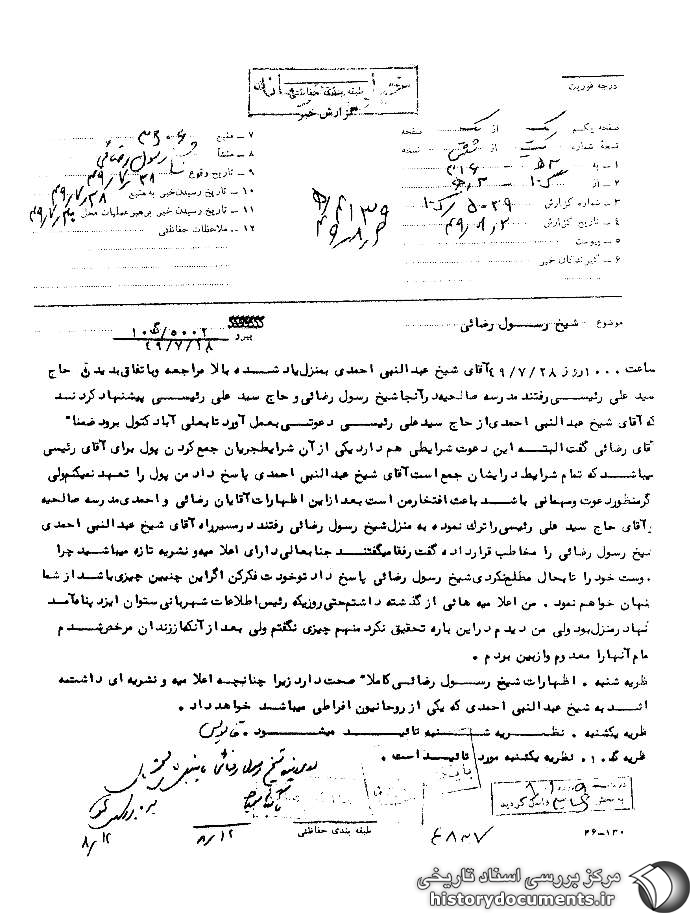 درجه فوریت
طبقه بندی حفاظتی
گزارش خبر
صفحه یکم از یک صفحه
نسخه شماره از نسخه
۱ ـ به ۳۱۶
۲ ـ از
۳ ـ شماره گزارش
۴ ـ تاریخ گزارش
۵ ـ پیوست
۶ ـ گیرندگان خبر
۷ ـ منبع
۸ ـ منشأ رسول رضائی
۹ ـ تاریخ وقوع
۱۰ ـ تاریخ رسیدن خبر به منبع
۱۱ ـ تاریخ رسیدن خبر برهبر عملیات محل
۱۲ ـ ملاحظات حفاظتی
موضوع شیخ رسول رضائی
پیرو
۴۹/۷/۲۸
ساعت ۱۰۰۰ روز ۴۹/۷/۲۸ آقای شیخ عبدالنبی احمدی بمنزل یاد شده بالا مراجعه و باتفاق بدیدن حاج
سید علی رئیسی رفتند مدرسه صالحیه در آنجا شیخ رسول رضائی و حاج سید علی رئیسی پیشنهاد کردند
که آقای شیخ عبدالنبی احمدی از حاج سید علی رئیسی دعوتی بعمل آورد تا بعلی آباد کتول برود ضمنا"
آقای رضائی گفت البته این دعوت شرایطی هم دارد یکی از آن شرایط جریان جمع کردن پول برای آقای رئیسی
میباشد که تمام شرایط در ایشان جمع است آقای شیخ عبدالنبی احمدی پاسخ داد من پول را تعهد نمیکنم ولی
گر منظور دعوت و مهمانی باشد باعث افتخار من است بعد از این اظهارات آقایان رضائی و احمدی مدرسه صالحیه
و آقای حاج سید علی رئیسی را ترک نموده به منزل شیخ رسول رضائی رفتند در مسیر راه آقای شیخ عبدالنبی احمدی
شیخ رسول رضائی را مخاطب قرار داده گفت رفقا میگفتند جنابعالی دارای اعلامیه و نشریه تازه میباشید چرا
دوست خود را تا بحال مطلع نکردی شیخ رسول رضائی پاسخ داد تو خودت فکر کن اگر این چنین چیزی باشد از شما
نهان خواهم نمود . من اعلامیه هائی از گذشته داشتم حتی روزیکه رئیس اطلاعات شهربانی ستوان ایزد پناه آمد
نهاد ر منزل بود ولی من دیدم در این باره تحقیق نکرد منهم چیزی نگفتم ولی بعد از آنکه از زندان مرخص شدم
مام آنها را معدوم و از بین بردم .
ظریه شنبه . اظهارات شیخ رسول رضائی کاملا" صحت دارد زیرا چنانچه اعلامیه و نشریه ای داشته
اشد به شیخ عبدالنبی احمدی که یکی از روحانیون افراطی میباشد خواهد داد .
ظریه یکشنبه . نظریه شنبه تائید میشود .
ظریه ک ۱۰ . نظریه یکشنبه مورد تائید است .
طبقه بندی حفاظتی
۸/۱۲
۸/۱۲
۲۶-۱۳۰
مرکز بررسی اسناد تاریخی
historydocuments.ir